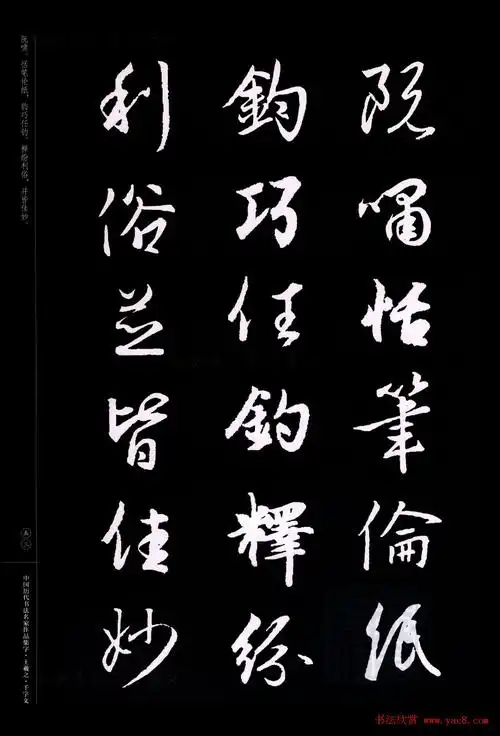 阮嘯恬筆倫紙
鈞巧任鈞釋紛
利俗並皆佳妙
阮啸。恬笔伦纸，钧巧任钓。释纷利俗，并皆佳妙。
五二
中国历代书法名家作品集字·王羲之·千字文
书法欣赏 www.yac8.com